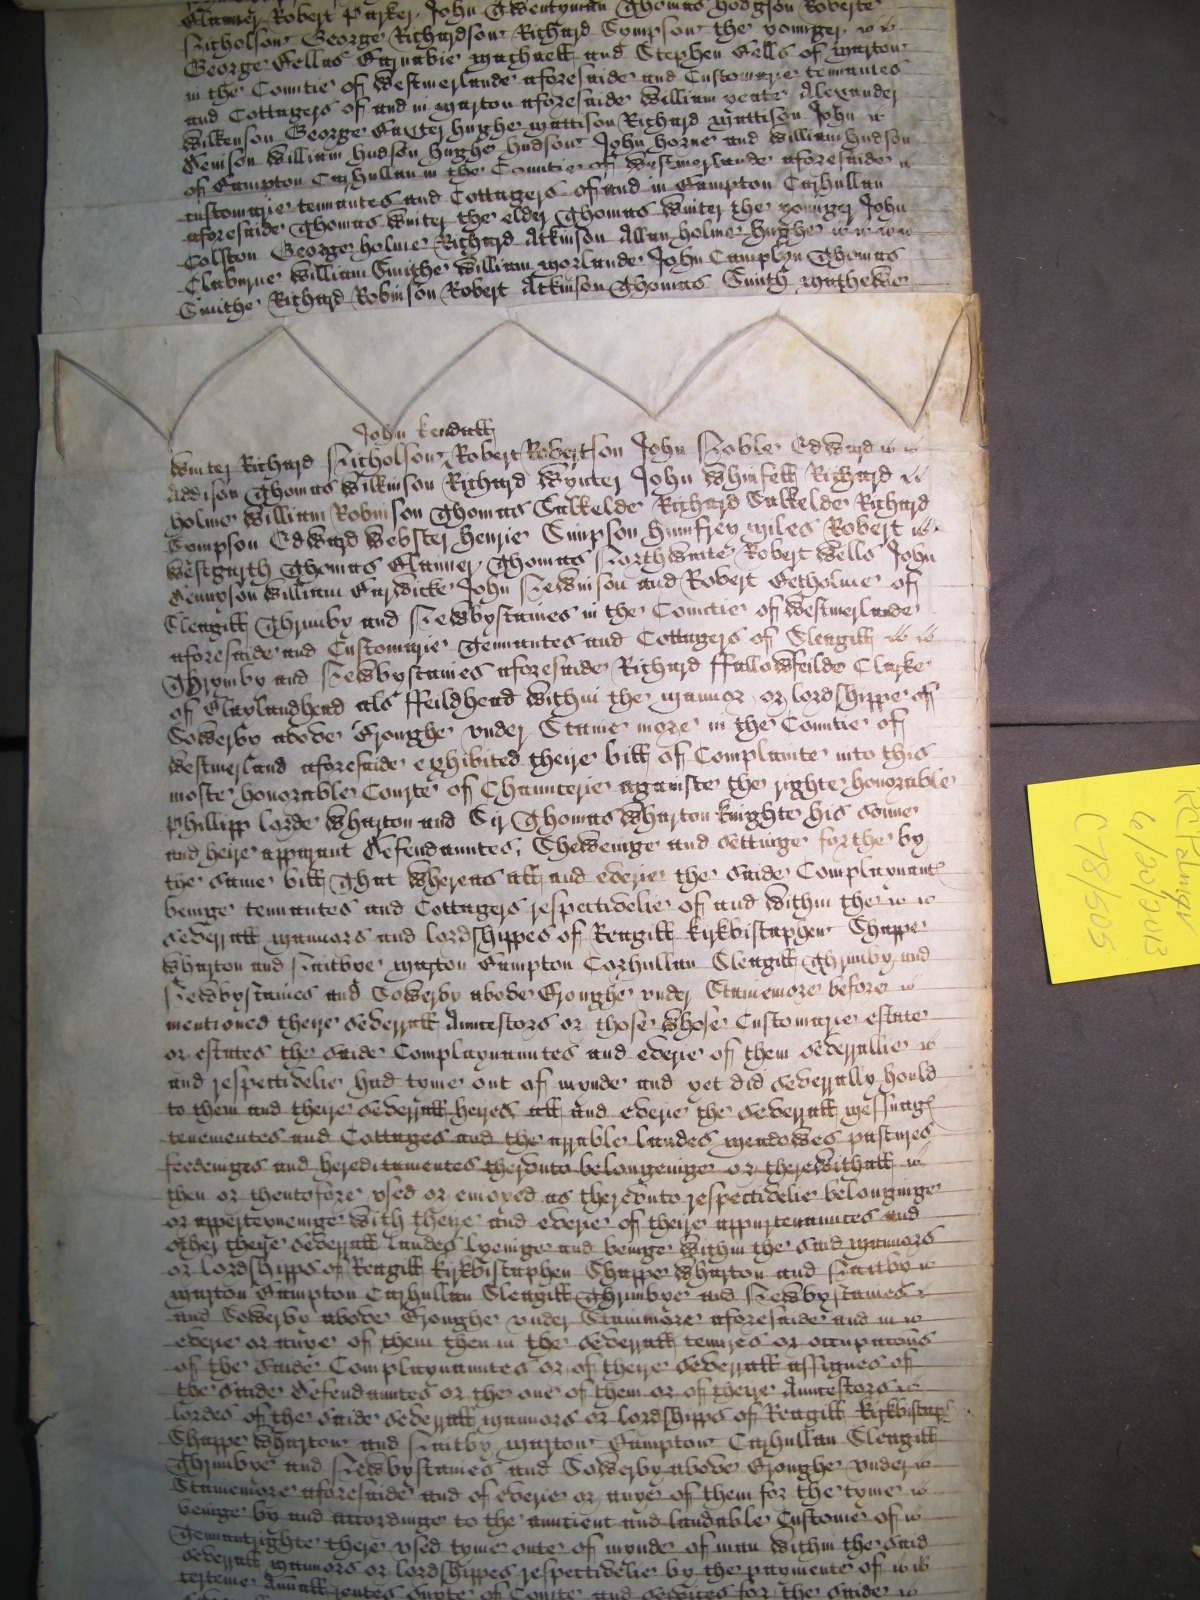 Robert Parker John Twentyman Thomas Hodgson Roberte
Nicholson George Richardson Richard Sympson the younger
George Barnabie Machaell and Stephen Sells of Marton
in the Countie of Westmerlande aforesaide and Customarie tennantes
and Cottagers of and in Marton aforesaide William Alexander
Wilkenson George Baxter Hughe Mattison Richard Mattison John
Denison William Hudson Hughe Hudson John Horne and William Hudson
of Bampton Carhullan in the Countie of Westmerlande aforesaide
customarie tennantes and Cottagers of and in Bampton Carhullan
aforesaide Thomas Winter the elder Thomas Winter the younger John
Colston George Holme Richard Atkinson Allan Holme Hughe
Claburne William Smithe William Morlande John Camplyn Thomas
Smithe Richard Robinson Robert Atkinson Thomas Smith Mathewe
John Kendall
Winter Richard Nicholson Robert Robertson John Noble Edward
Addison Thomas Wilkinson Richard Wynter John Whinfell Richard
Holme William Robinson Thomas Salkelde Richard Salkelde Richard
Sympson Edward Webster Henrie Simpson Humfrey Miles Robert
Westgarth Thomas Thomas Northwaite Robert Wells John
Dennyson William Bardicke John Newinson and Robert Getholme of
Sleagill Thrimby and Newbystaines in the Countie of Westmerlande
aforesaide and Customarie Tennantes and Cottagers of Sleagill
Thrymby and Newbystaines aforesaide Richard ffallowfeilde Clarke
of als ffeildhead within the Mannor or lordshippe of
Sowerby above Broughe under Stanemore in the Countie of
Westmerland aforesaide exhibited theire bill of Complainte into this
moste honorable Courte of Chauncerie againste the righte honorable
Phillipp lorde Wharton and Sir Thomas Wharton knighte his sonne
and heire apparant Defendauntes, Shewenge and settinge forthe by
the same bill That whereas all and everie the saide Complaynant
beinge tennantes and Cottagers respectivelie of and within the
severall mannors and lordshippes of Reagill Kirkbistaphen Shappe
Wharton and Naitbye Marton Bampton Carhullan Sleagill Thrimby and
Newbystaines and Sowerby above Broughe under Stanemore before
mentioned theire severall Auncestors or those whose Customarie estate
or estates the saide Complaynauntes and everie of them severallie
and respectivelie had tyme out of mynde and yet did severally hould
to them and theire severall heires all and everie the severall messuag
tenementes and Cottages and the arrable landes meadowes pastures
feedenges and hereditamentes therunto belongenge or therewithall
then or thentofore used or enioyed as therunto respectivelie belonginge
or apperteyneinge with theire and everie of theire appurtenaunces and
other theire severall landes lyeinge and beinge within the said mannors
or lordshipps of Reagill Kirkbistaphen Shappe Wharton and Naitby
Marton Bampton Carhullan Sleagill Thrimbye and Newbystaines
and Sowerby above Broughe under Stainmore aforesaide and in
everie or anye of them then in the severall tenures or occupacons
of the saide Complaynauntes or of theire severall assignes of
the saide Defendauntes or the one of them or of theire Auncestors
lordes of the saide severall mannors or lordshipps of Reagill Kirkbistap
Shappe Wharton and Naitby Marton Bampton Carhullan Sleagill
Thrimbye and Newbystaines and Sowerby above Broughe under
Stanemore aforesaide and of everie or anye of them for the tyme
beinge by and accordinge to the auncient and laudable Custome of
Tennantrighte there used tyme oute of mynde of man within the said
severall mannors or lordshippes respectivelie by the paymente of
certeine Annuall rentes suyte of Courte and services for the saide
6/20/2013
C78/505